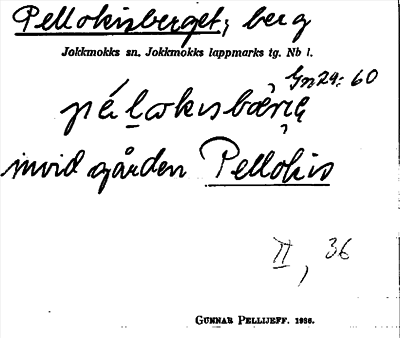 Pellokisberget, berg
Jokkmokks sn. Jokkmokks lappmarks tg. Nb l.
Gn29: 60
invid gården Pellokis
II, 36
GUNNAR PELLIJEFF. 1936.